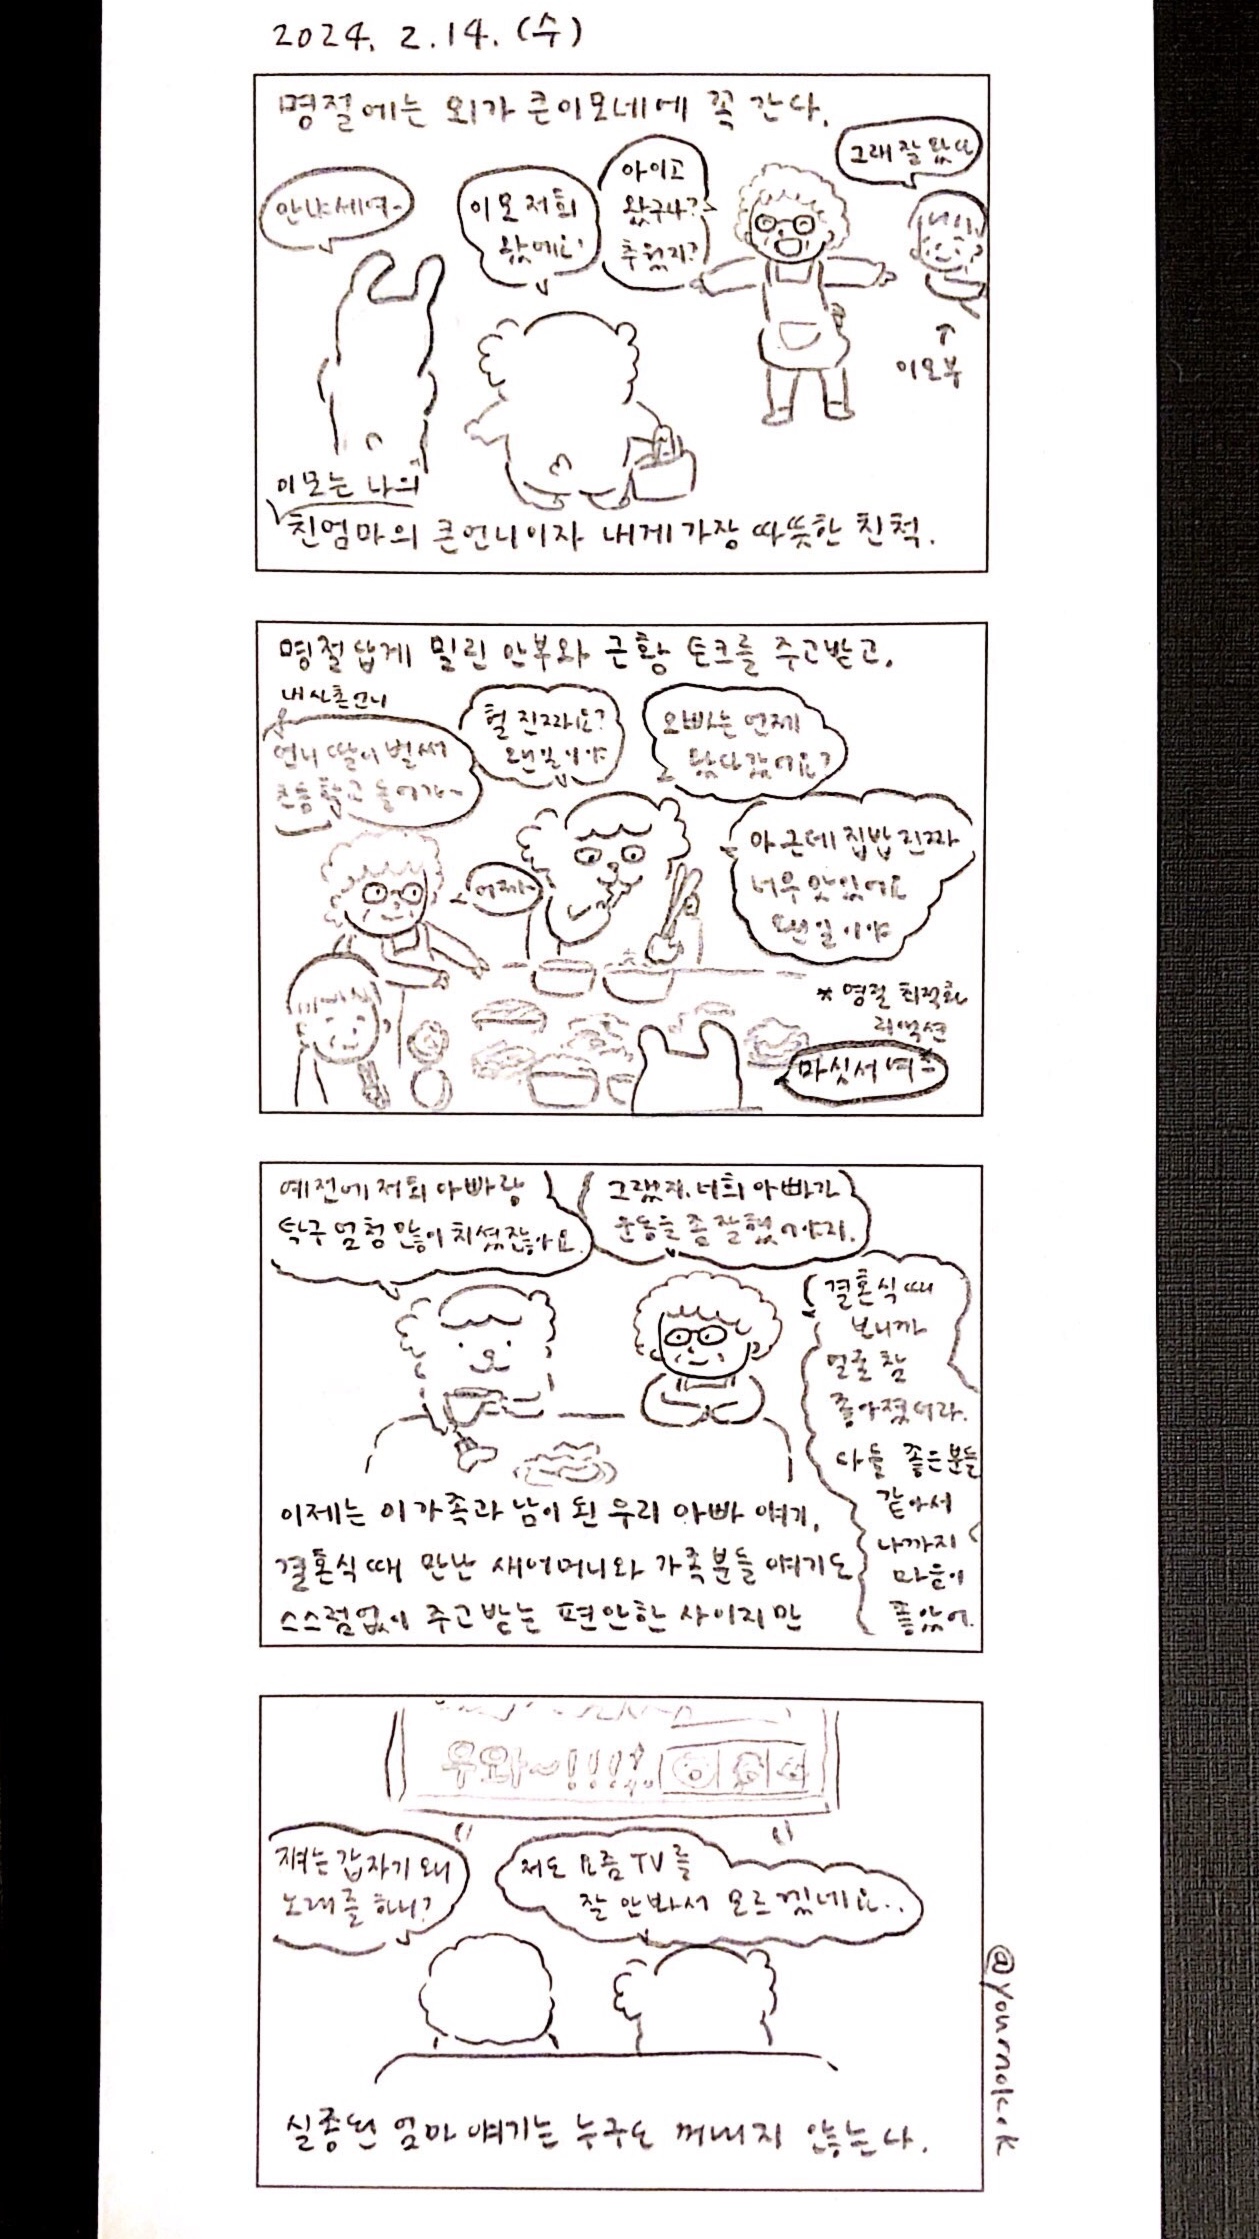 2024. 2.14. (수)
명절에는 외가 큰이모네에 꼭 간다.
안냐세여~
이모 저희
왔예요!
아이고
왔구나?
추웠지?
그래 잘 왔다
이모부
이모는 나의
친엄마의 큰언니이자 내게 가장 따뜻한 친척.
명절답게 밀린 안부와 근황 토크를 주고받고,
내 사촌언니
언니 딸이 벌써
초등학교 들어가~
헐 진짜요?
웬일이야
오빠는 언제
왔다갔어요?
어제~
아 근데 집밥 진짜
너무 맛있어요
웬일이야
* 명절 최적화
리액션
마싯서여
예전에 저희 아빠랑
탁구 엄청 많이 치셨잖아요
그랬지. 너희 아빠가
운동을 좀 잘했어야지.
결혼식 때
보니까
얼굴 참
좋아졌더라.
다들 좋은분들
같아서
나까지
마음이
좋았어.
이제는 이 가족과 남이 된 우리 아빠 얘기,
결혼식 때 만난 새어머니와 가족분들 얘기도
스스럼없이 주고받는 편안한 사이지만
우와~!!!!
쟤는 갑자기 왜
노래를 하니?
저도 요즘 TV를
잘 안봐서 모르겠네요..
실종된 엄마 얘기는 누구도 꺼내지 않는다.